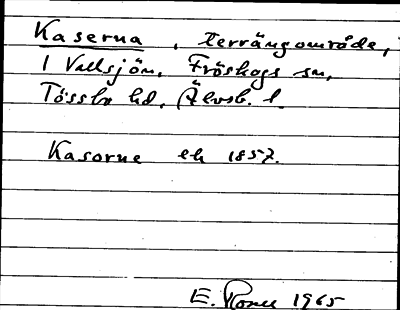 Kaserna, terrängområde,
I Vallsjön, Fröskogs sn,
Tössbo hd, Älvsb. l.
Kasorne ek 1857.
E. 1965